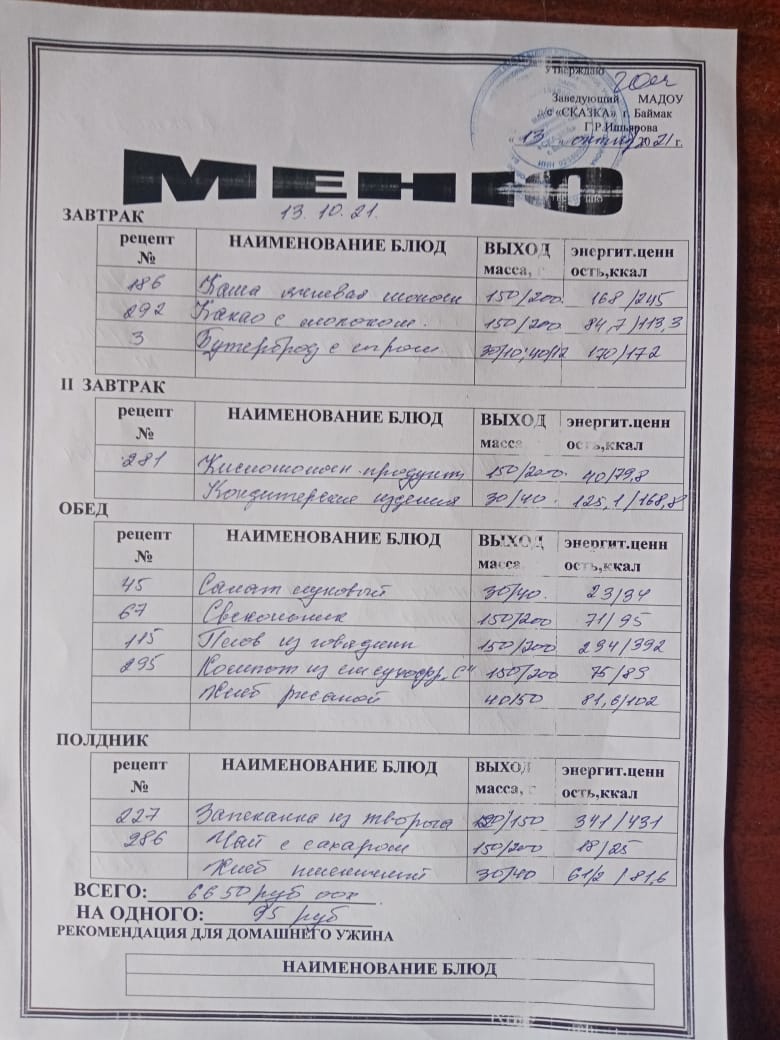 Утверждаю
70 чел
Заведующий МАДОУ
д/с «СКАЗКА» г. Баймак
Г.Р.Ишьярова
« 13 » октября 2021 г.
МЕНЮ
13. 10. 21.
ЗАВТРАК
рецепт № НАИМЕНОВАНИЕ БЛЮД ВЫХОД масса, г энергит.ценн ость,ккал
186 Каша молочн 150/200. 168/245
292 Какао с молоком. 150/200. 84,7/113,3
3 Бутерброд с сыром 30/10; 40/12 170/172
II ЗАВТРАК
рецепт № НАИМЕНОВАНИЕ БЛЮД ВЫХОД масса энергит.ценн ость,ккал
281 Кисломолочн. продукты 150/200. 40/79,8
Кондитерские изделия 30/40. 125,1/168,8
ОБЕД
рецепт № НАИМЕНОВАНИЕ БЛЮД ВЫХОД масса энергит.ценн ость,ккал
45 Салат луковый 30/40. 23/34
67 Свекольник 150/200 71/95
115 Плов из говядины 150/200 294/392
295 Компот из см сухофр. "С" 150/200 75/89
Хлеб ржаной 40/50 81,6/102
ПОЛДНИК
рецепт № НАИМЕНОВАНИЕ БЛЮД ВЫХОД масса, г энергит.ценн ость,ккал
227 Запеканка из творога 120/150 341/431
286 Чай с сахаром 150/200 18/25
Хлеб пшеничный 30/40 61,2 / 81,6
ВСЕГО: 6650 руб 00х
НА ОДНОГО: 95 руб
РЕКОМЕНДАЦИЯ ДЛЯ ДОМАШНЕГО УЖИНА
НАИМЕНОВАНИЕ БЛЮД